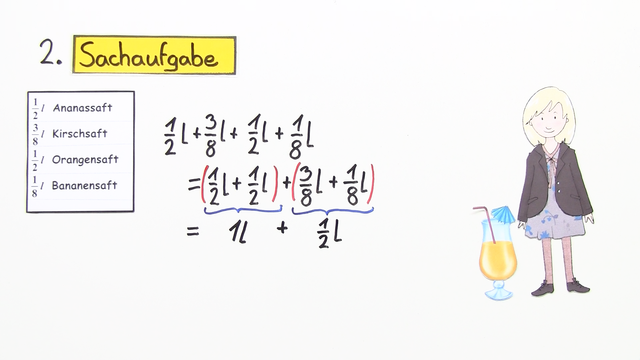 2. Sachaufgabe
1/2 l Ananassaft
3/8 l Kirschsaft
1/2 l Orangensaft
1/8 l Bananensaft
1/2 l + 3/8 l + 1/2 l + 1/8 l
= (1/2 l + 1/2 l) + (3/8 l + 1/8 l)
= 1 l + 1/2 l